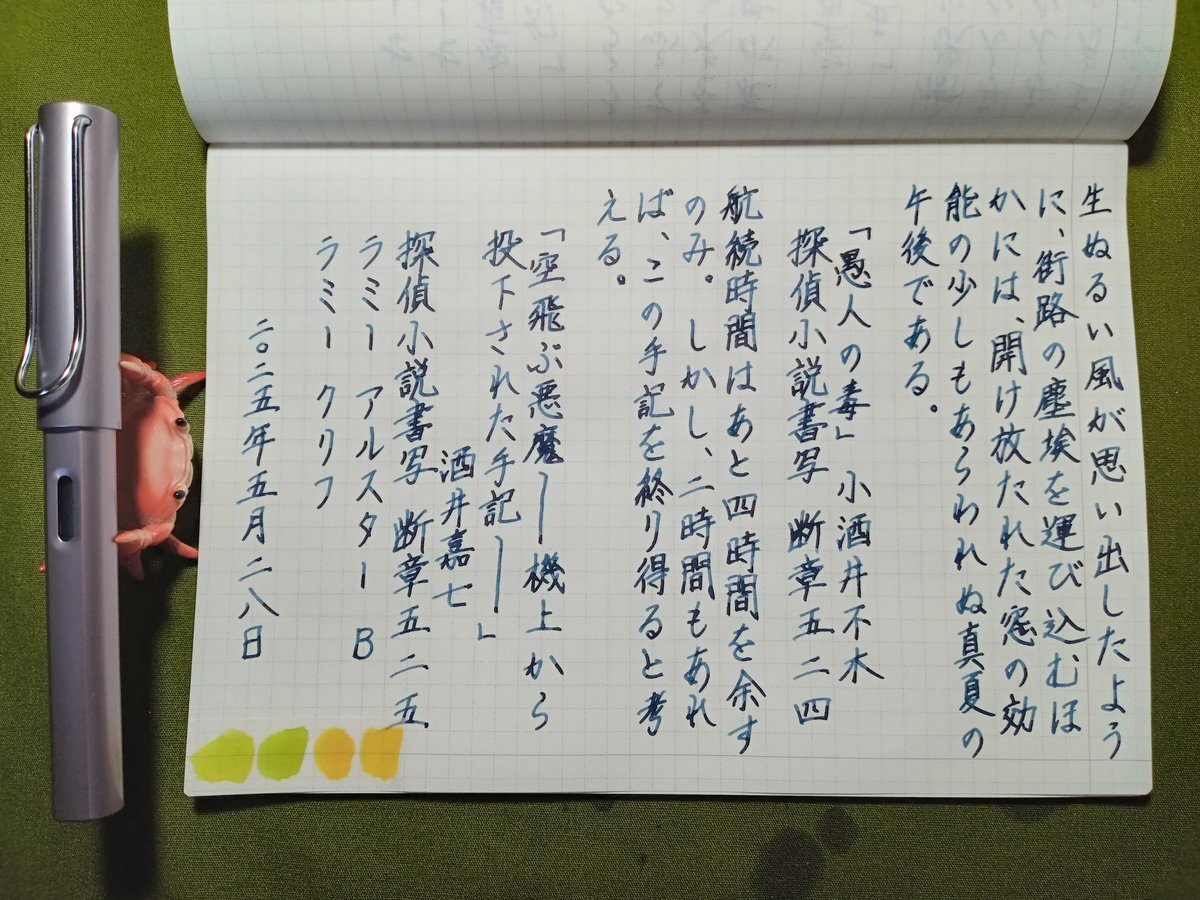 生ぬるい風が思い出したよう
に、街路の塵埃を運び込むほ
かには、開け放たれた窓の効
能の少しもあらわれぬ真夏の
午後である。
「愚人の毒」 小酒井不木
探偵小説書写 断章五二四
航続時間はあと四時間を余す
のみ。しかし、二時間もあれ
ば、この手記を終り得ると考
える。
「空飛ぶ悪魔――機上から
投下された手記――」
酒井嘉七
探偵小説書写 断章五二五
ラミー アルスター B
ラミー クリフ
二〇二五年五月二八日